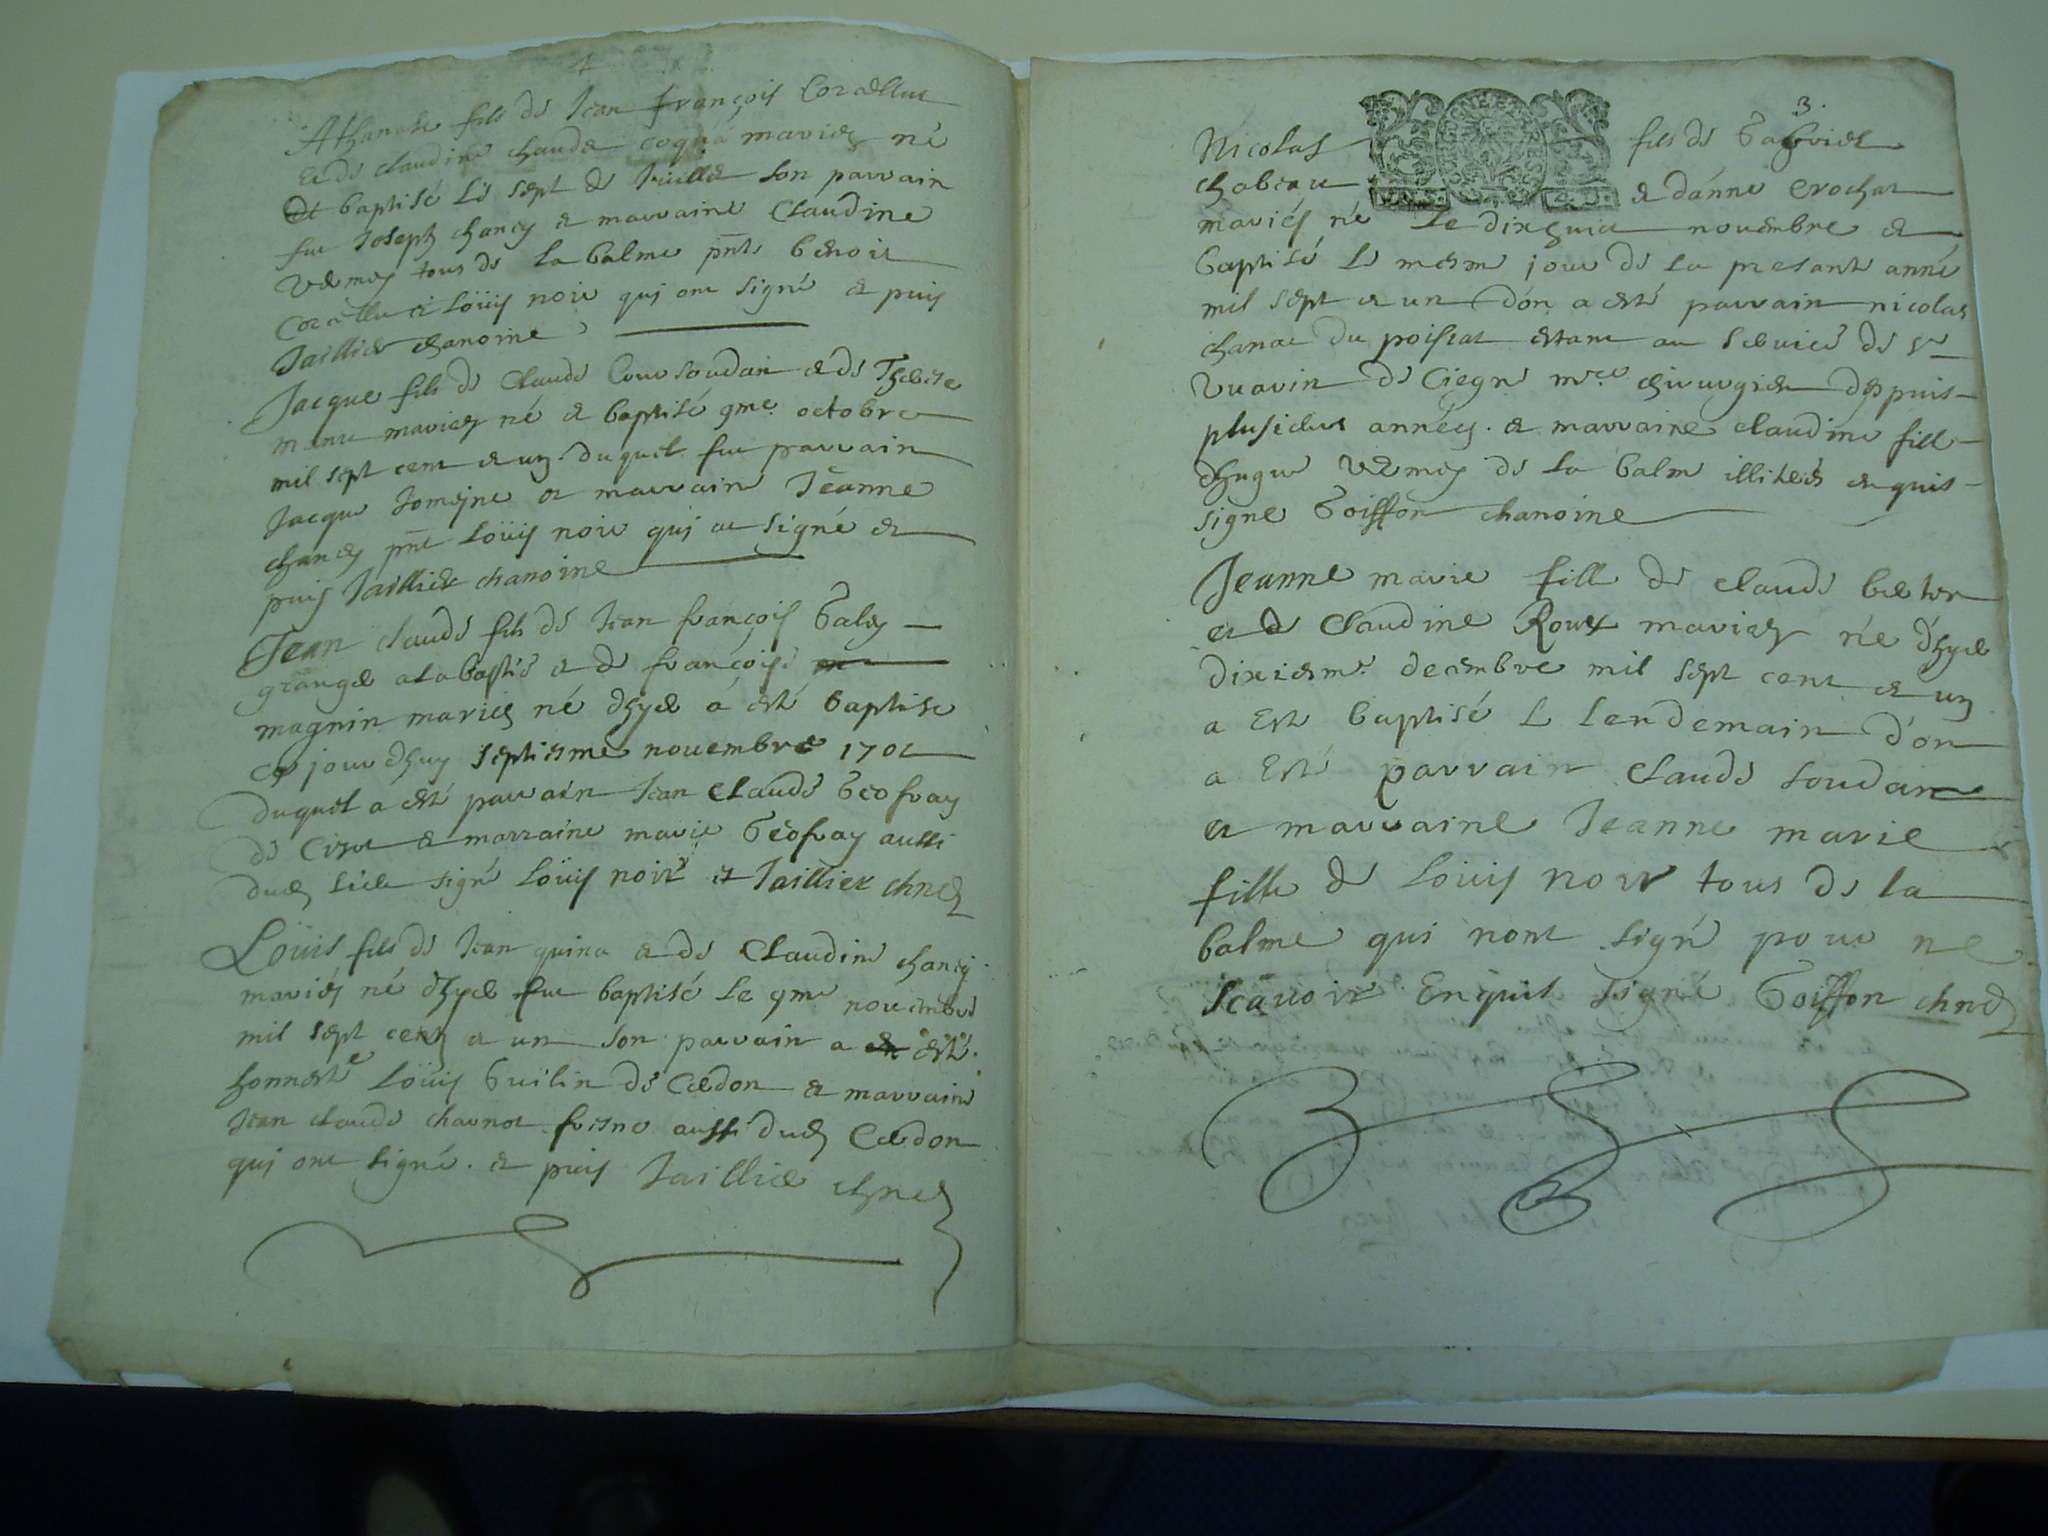 Athanase fils de Jean françois
et de claudine chauda coqua mariez né
et baptisé le sept de Juillet son parrain
fut Joseph chancy et marraine Claudine
tous de la balme pnts benoit
et Loüis noir qui ont signé et puis
Jaillier chanoine
Jacque fils de Claude Cour Soudan et de
mariez né et baptisé 9me octobre
mil sept cent et un duquel fut parrain
Jacque et marraine Jeanne
chancy pnt Loüis noir qui at signé et
puis Jaillier chanoine
Jean claude fils de Jean françois Galey
granger a la bastie et de françoise
magnin mariez né dhyer á esté baptise
ce jourdhuy septiesme novembre 1701
duquel a esté parrain Jean Claude Geofray
de Cize et marraine marie Geofray aussi
dud signé Loüis noir et Jaillier chne
Loüis fils de Jean quina et de Claudine chancy
mariés né dhyer fut baptisé le 9me novembre
mil sept cent et un son parrain a esté
honneste Loüis Guilin de Cerdon et marraine
Jean claude charnot aussi dud Cerdon
qui ont signé. et puis Jaillier chne
3.
Nicolas fils de Gabriel
chabeau et danne crochat
mariés né Le dixhuit novembre et
baptisé le mesme jour de la presante anné
mil sept et un don a esté parrain nicolas
chanat du poisiat estant au service de Sr
vuarin de Ciegne mre chirurgien despuis
plusieurs années. et marraine claudine fille
dhugue de la balme illiteré enquis
signe Goiffon chanoine
Jeanne marie fille de claude
et de Claudine Roux mariez née dhyer
dixiesme decembre mil sept cent et un
a Esté baptisé le lendemain don
a Esté parrain claude soudan
et marraine Jeanne marie
fille de Loüis noir tous de la
balme qui nont signé pour ne
scavoir Enquis signé Goiffon chne